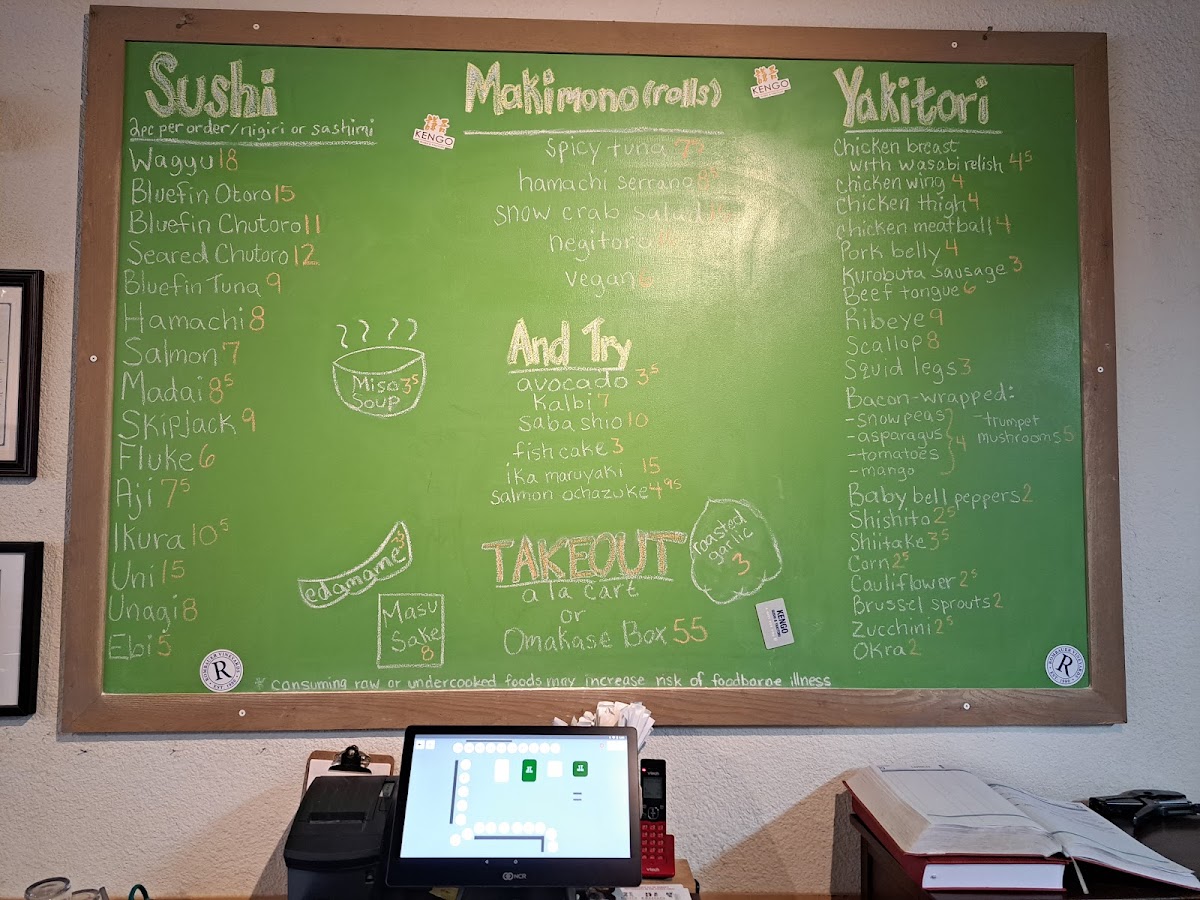 Sushi
2pc per order/nigiri or sashimi
Wagyu 18
Bluefin Otoro 15
Bluefin Chutoro 11
Seared Chutoro 12
Bluefin Tuna 9
Hamachi 8
Salmon 7
Madai 8⁵
Skipjack 9
Fluke 6
Aji 7⁵
Ikura 10⁵
Uni 15
Unagi 8
Ebi 5
KENGO
Makimono (rolls)
KENGO
spicy tuna
hamachi serrano
snow crab salad
negitoro
vegan 6
Miso 3⁵
Soup
And Try
avocado 3⁵
Kalbi 7
saba shio 10
fish cake 3
ika maruyaki 15
salmon ochazuke 4⁹⁵
edamame
Masu
Sake
8
TAKEOUT
a la cart
or
Omakase Box 55
roasted
garlic
3
KENGO
Yakitori
Chicken breast
with wasabi relish 4⁵
chicken wing 4
chicken thigh 4
chicken meatball 4
Pork belly 4
Kurobuta sausage 3
Beef tongue 6
Ribeye 9
Scallop 8
Squid legs 3
Bacon-wrapped:
-snow peas
-asparagus
-tomatoes
-mango
4
-trumpet
mushrooms 5
Baby bell peppers 2
Shishito 2⁵
Shiitake 3⁵
Corn 2⁵
Cauliflower 2⁵
Brussel sprouts 2
Zucchini 2⁵
Okra 2
R
ROMBAUER VINEYARDS
R
ROMBAUER VINEYARDS
* consuming raw or undercooked foods may increase risk of foodborne illness
vtech
NCR